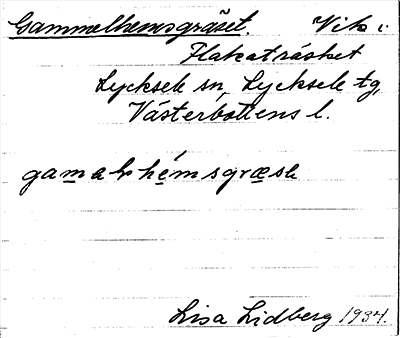 Gammelhemsgräset. Vik i
Flakaträsket
Lycksele sn, Lycksele tg,
Västerbottens l.
gamalhémsgræsε
Lisa Lidberg 1934.